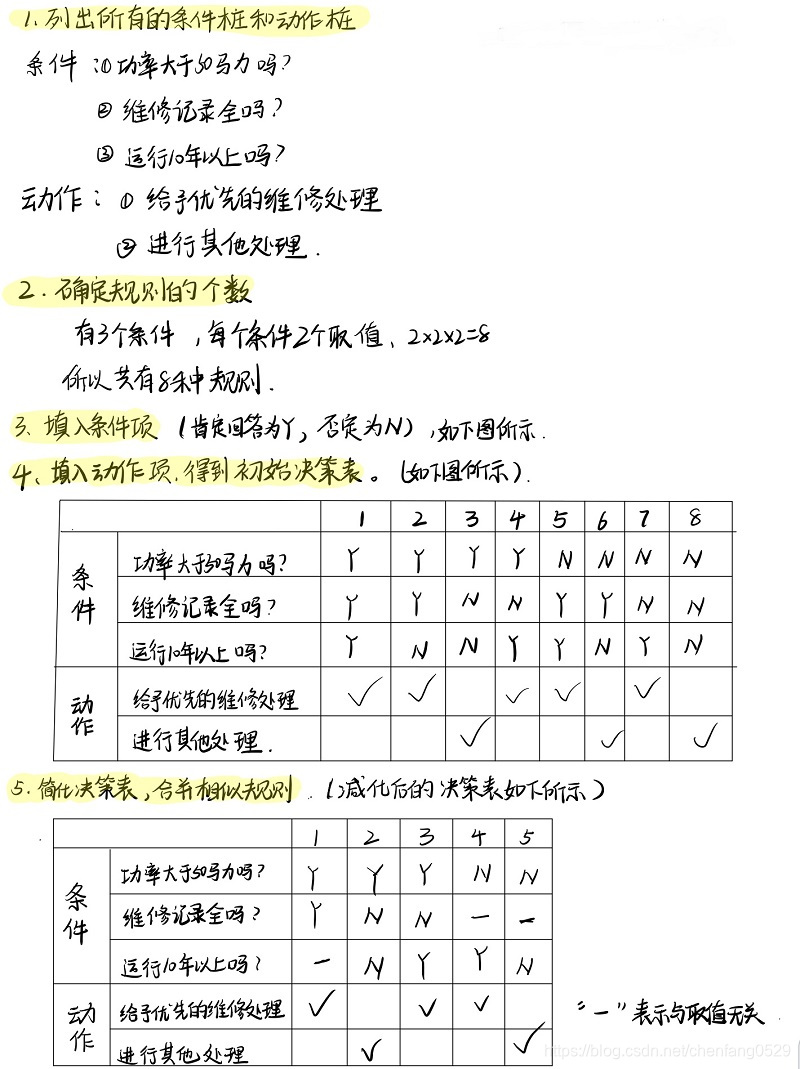 1. 列出所有的条件桩和动作桩
条件：① 功率大于50马力吗？
② 维修记录全吗？
③ 运行10年以上吗？
动作：① 给予优先的维修处理
② 进行其他处理．
2. 确定规则的个数
有3个条件，每个条件2个取值、2×2×2=8
所以共有8种规则．
3、填入条件项（肯定回答为Y，否定为N），如下图所示．
4、填入动作项，得到初始决策表。（如下图所示）．
1 2 3 4 5 6 7 8
条件
功率大于50马力吗？ Y Y Y Y N N N N
维修记录全吗？ Y Y N N Y Y N N
运行10年以上吗？ Y N N Y Y N Y N
动作
给予优先的维修处理 ✓ ✓ ✓ ✓ ✓
进行其他处理． ✓ ✓ ✓
5. 简化决策表，合并相似规则．（减化后的决策表如下所示）
1 2 3 4 5
条件
功率大于50马力吗？ Y Y Y N N
维修记录全吗？ Y N N — —
运行10年以上吗？ — N Y Y N
动作
给予优先的维修处理 ✓ ✓ ✓
进行其他处理 ✓ ✓
“—”表示与取值无关
https://blog.csdn.net/chenfang0529